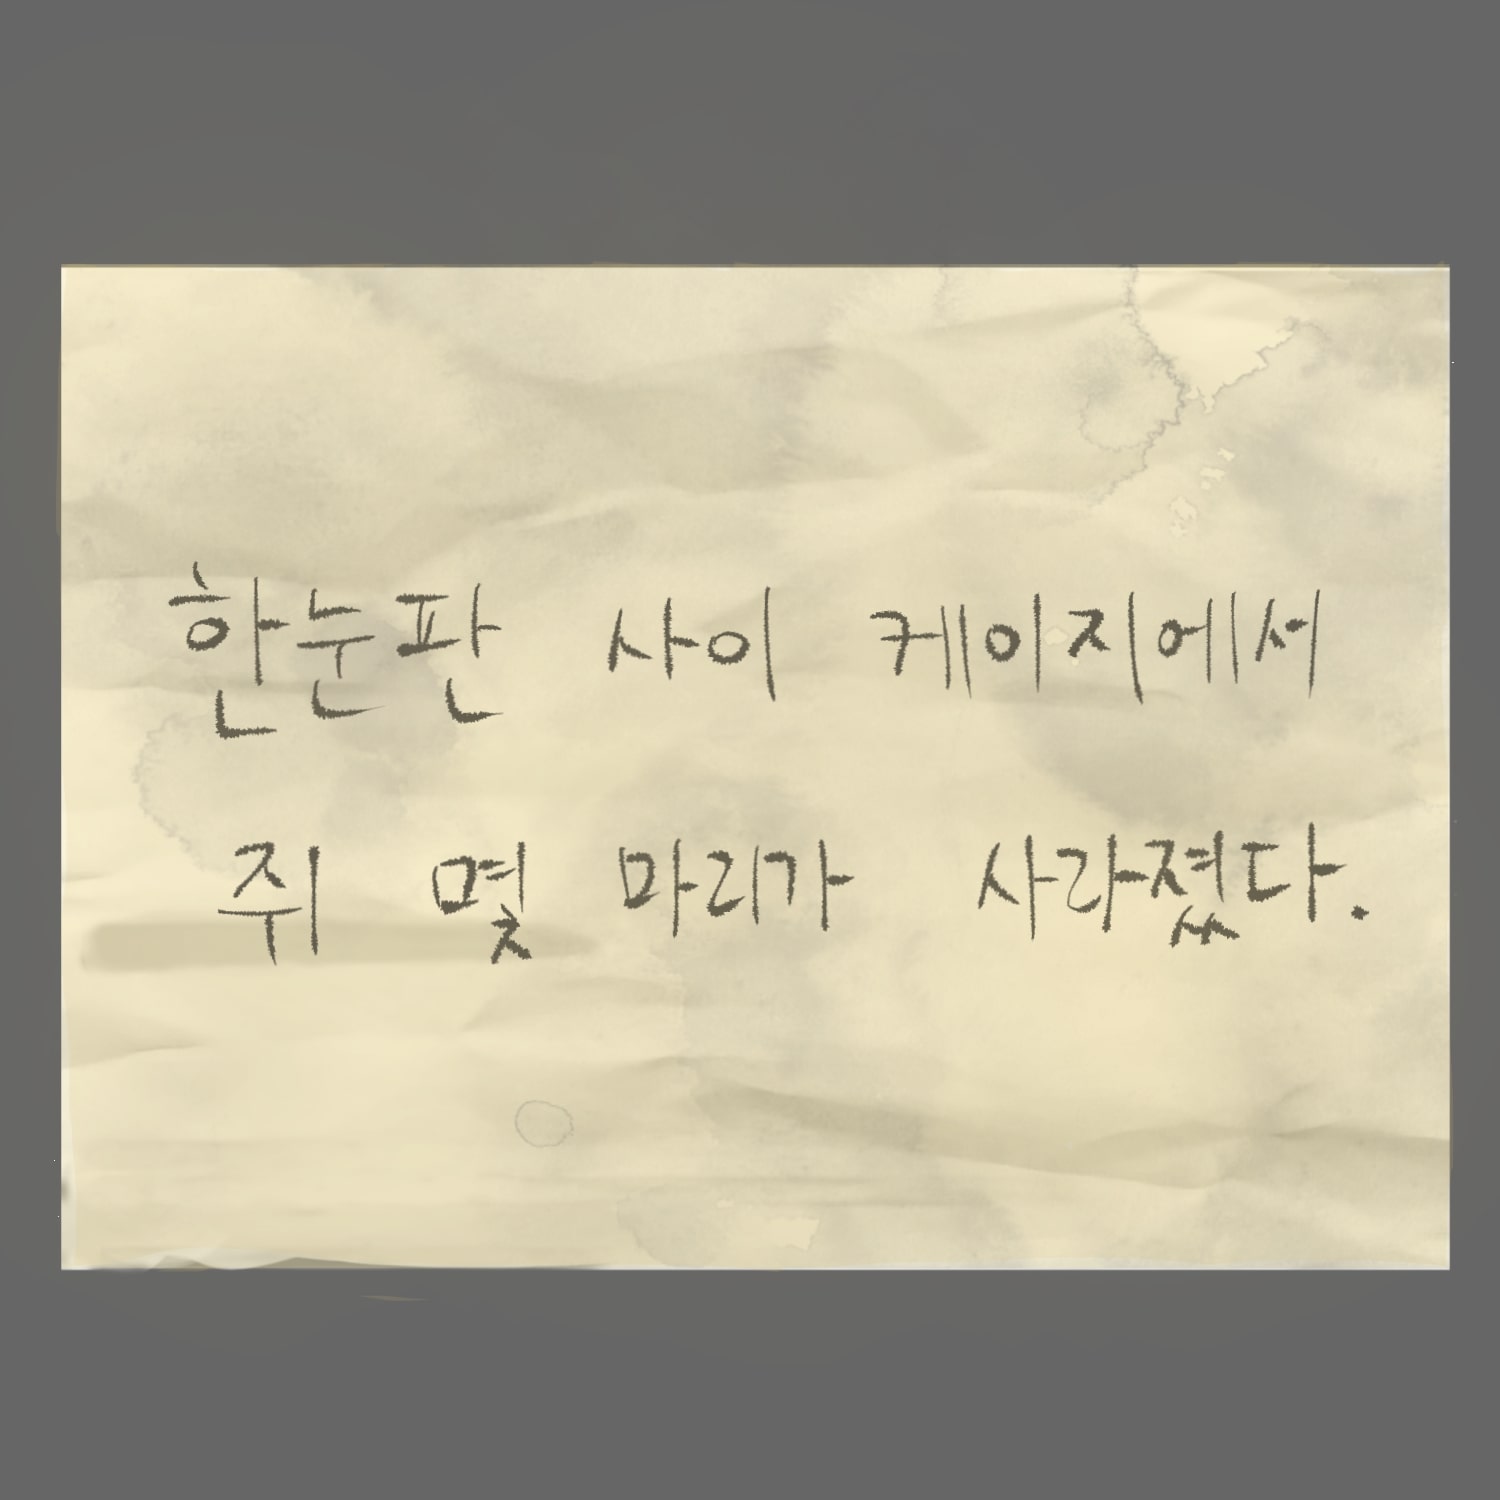 한눈판 사이 케이지에서
쥐 몇 마리가 사라졌다.